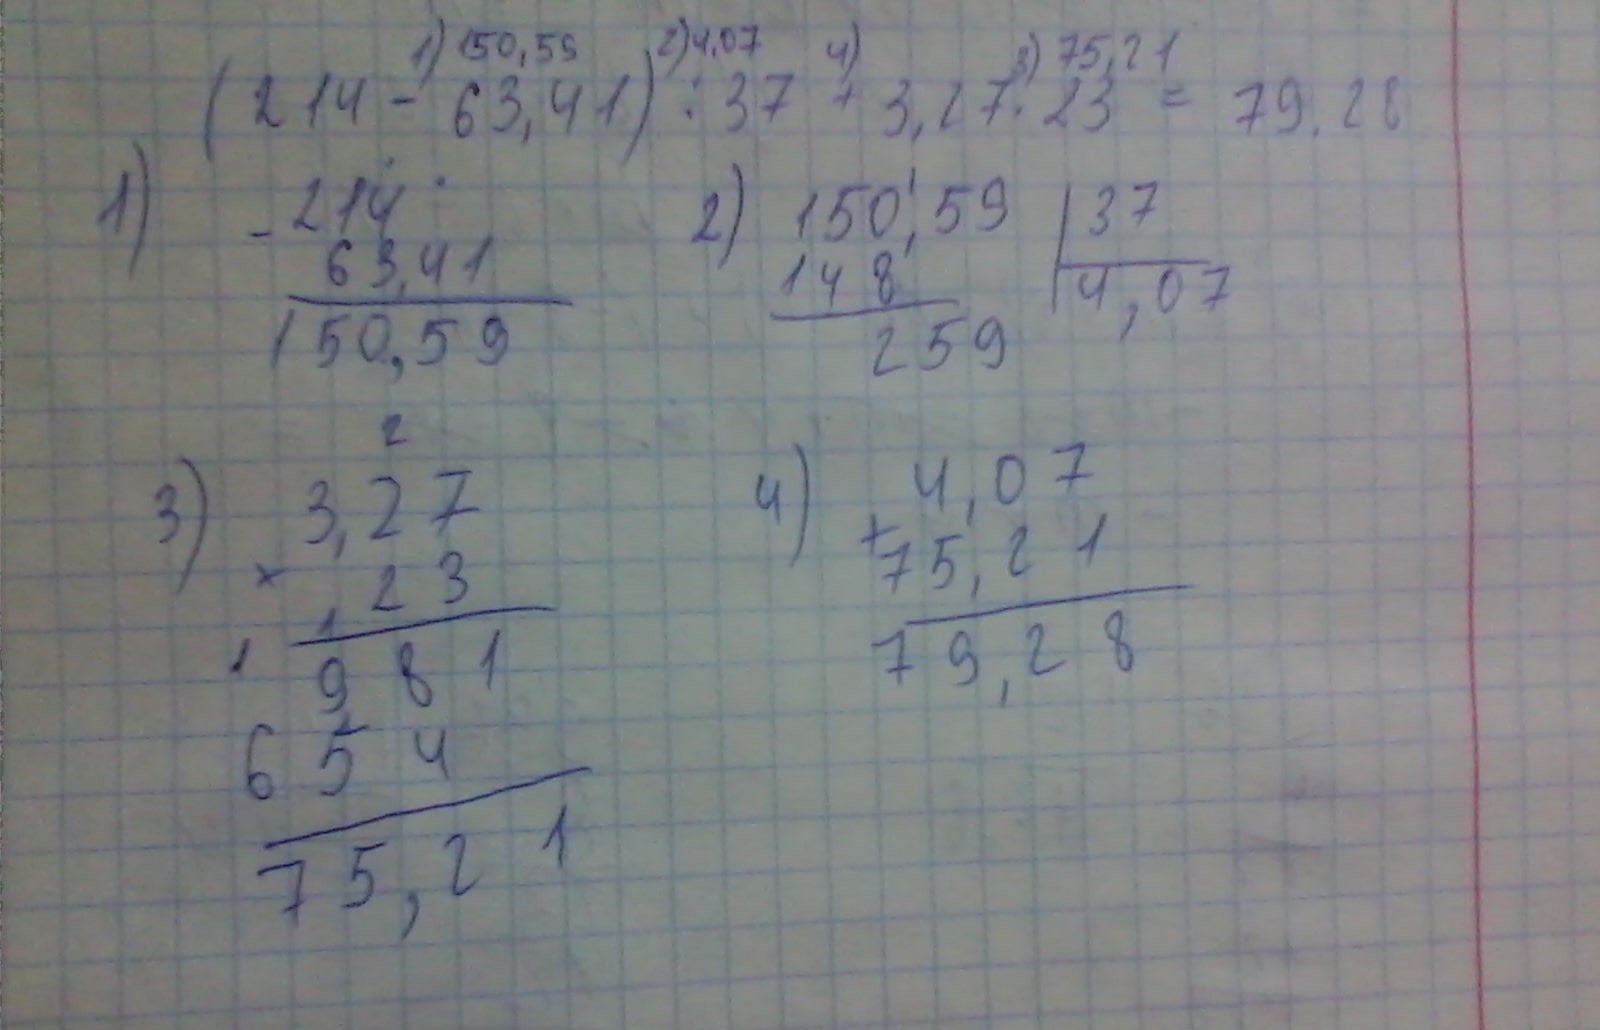 1) 150,59 2) 4,07 4) 3) 75,21
(214 - 63,41) : 37 + 3,27 · 23 = 79.28
1) - 214
63,41
150,59
2) 150,59 | 37
148 4,07
259
3) 2
3,27
× 23
1
1 981
654
75,21
4) 4,07
+ 75,21
79,28